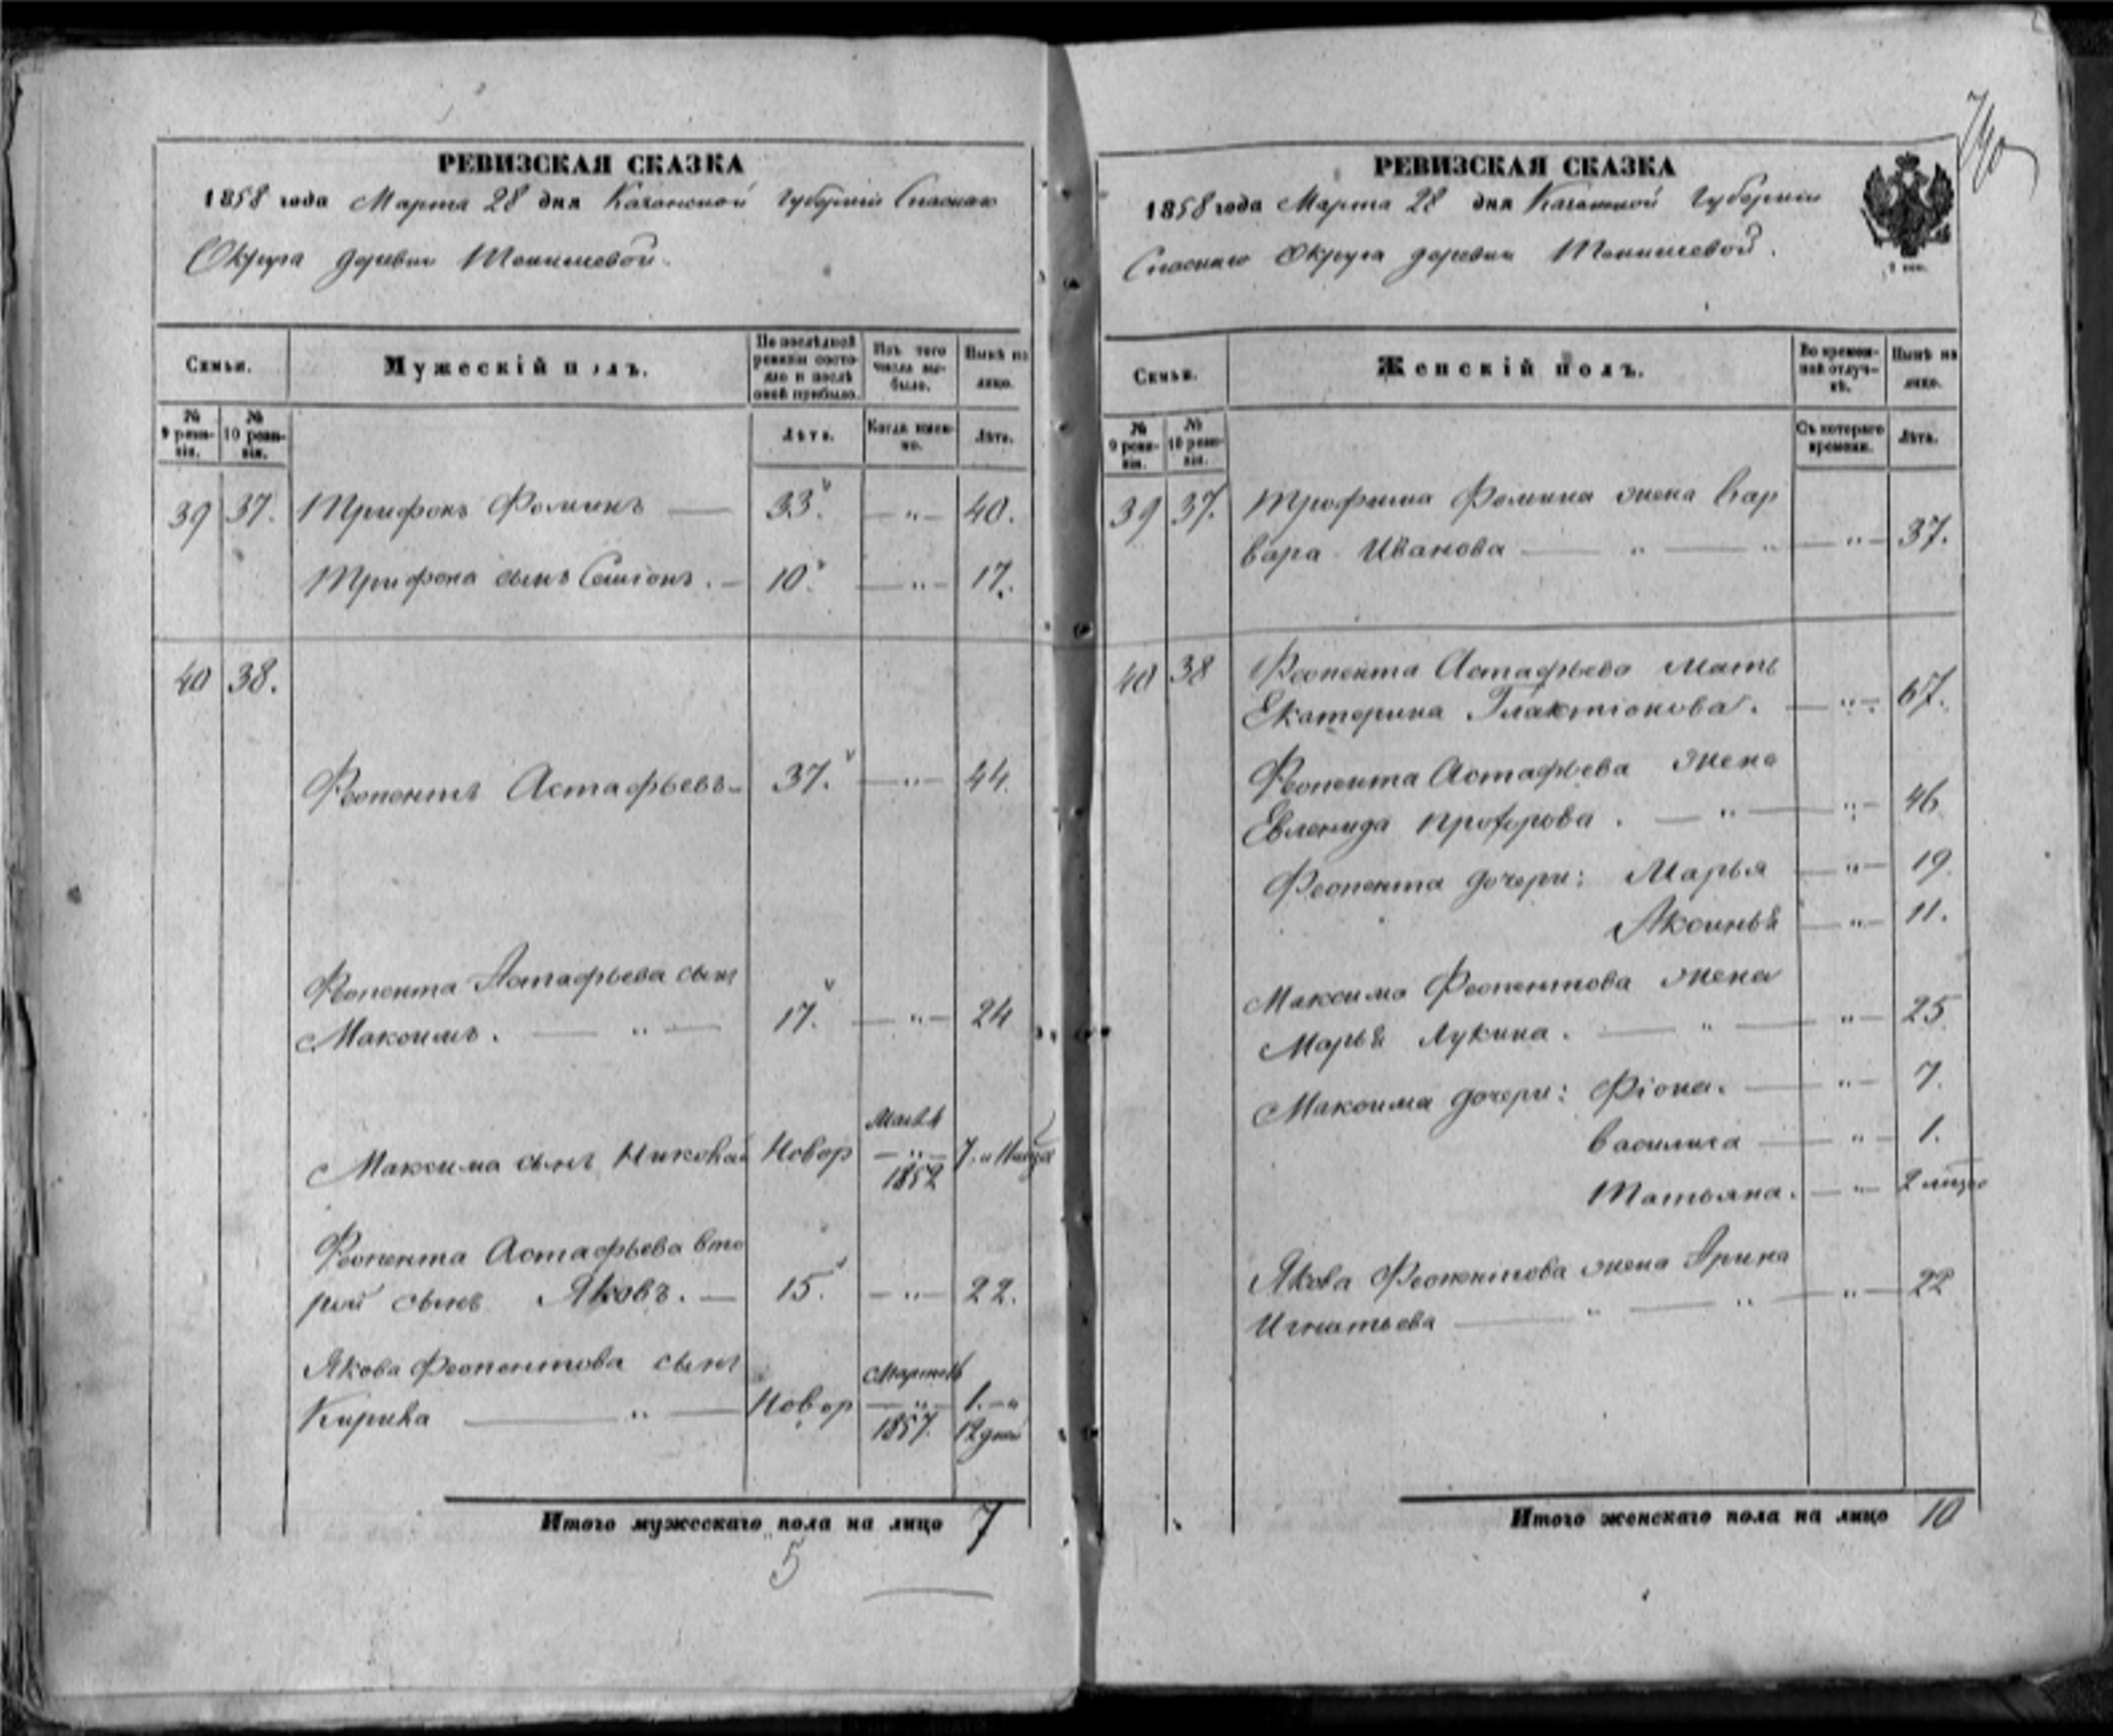 740
РЕВИЗСКАЯ СКАЗКА
1858 года Марта 28 дня Казанской губернiи Спаскаго
Округа деревни Тенишевой.
Семьи.
Мужескiй полъ.
По послѣдней ревизiи состояло и послѣ оной прибыло.
Изъ того числа выбыло.
Нынѣ на лицо.
№ 9 ревизiи.
№ 10 ревизiи.
Лѣта.
Когда именно.
Лѣта.
39 37. Трифонъ Фоминъ — 33. — " — 40.
Трифона сынъ Семiонъ. — 10. — " — 17.
40 38.
Феопентъ Астафьевъ — 37. — " — 44.
Феопента Астафьева сынъ
Максимъ. — " — 17. — " — 24
Максима сынъ Николай Новор — " — 1852
Феопента Астафьева вто
рый сынъ Яковъ. — 15. — " — 22.
Якова Феопентова сынъ
Кирика — " — Новор — " — 1857. 1. — " 12 дней
Итого мужескаго пола на лицо 7
5
РЕВИЗСКАЯ СКАЗКА
1858 года Марта 28 дня Казанской губернiи
Спаскаго Округа деревни Тенишевой.
Семьи.
Женскiй полъ.
Во временной отлучкѣ.
Нынѣ на лицо.
№ 9 ревизiи.
№ 10 ревизiи.
Съ котораго времени.
Лѣта.
39 37. Трофима Фомина жена Вар
вара Иванова — " — " — " — 37.
40 38 Феопента Астафьева мать
Екатерина Галактiонова. — " — 67.
Феопента Астафьева жена
Евленида Прохорова. — " — " — 46
Феопента дочери: Марья — " — 19
Аксинья — " — 11.
Максима Феопентова жена
Марья Лукина. — " — " — 25
Максима дочери: Фiона. — " — 7.
Василиса — " — 1.
Татьяна. — " — 2
Якова Феопентова жена Ирина
Игнатьева — " — " — " — 22
Итого женскаго пола на лицо 10